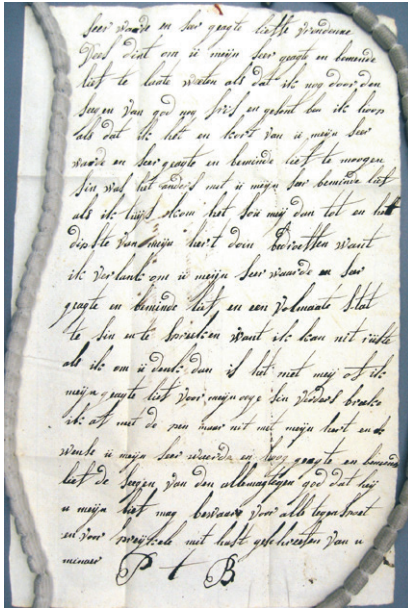 seer waarde en seer geagte liefste vrindinne
Dees dint om u meijn seer geagte en beminde
lief te laate weeten als dat ik nog door den
seegen van god nog fris en gesont ben ik hoop
als dat ik het en kort van u meijn seer
waarde en seer geagte en beminde lief te moogen
sin was het anders met u meijn seer beminde lief
als ik huijs kom het sou meij dan tot en het
dipste van meijn hert doin bedroeften want
ik verlank om u meijn seer waarde en seer
geagte en beminde lief en een volmaate Stat
te sin en te spreeken want ik kan nit ruste
als ik om u denk dan is het met meij of ik
meijn geagte lief voor meijn ooge sin verders breeke
ik af met de pen maar nit met meijn hert en
wense u meijn seer waerde en hoog geagte en beminde
lief de seegen van den allemagtegen god dat heij
u meijn lief mag bewaare voor alle teegenspoet
en voor met lust geschreeven van u
minaar P t B